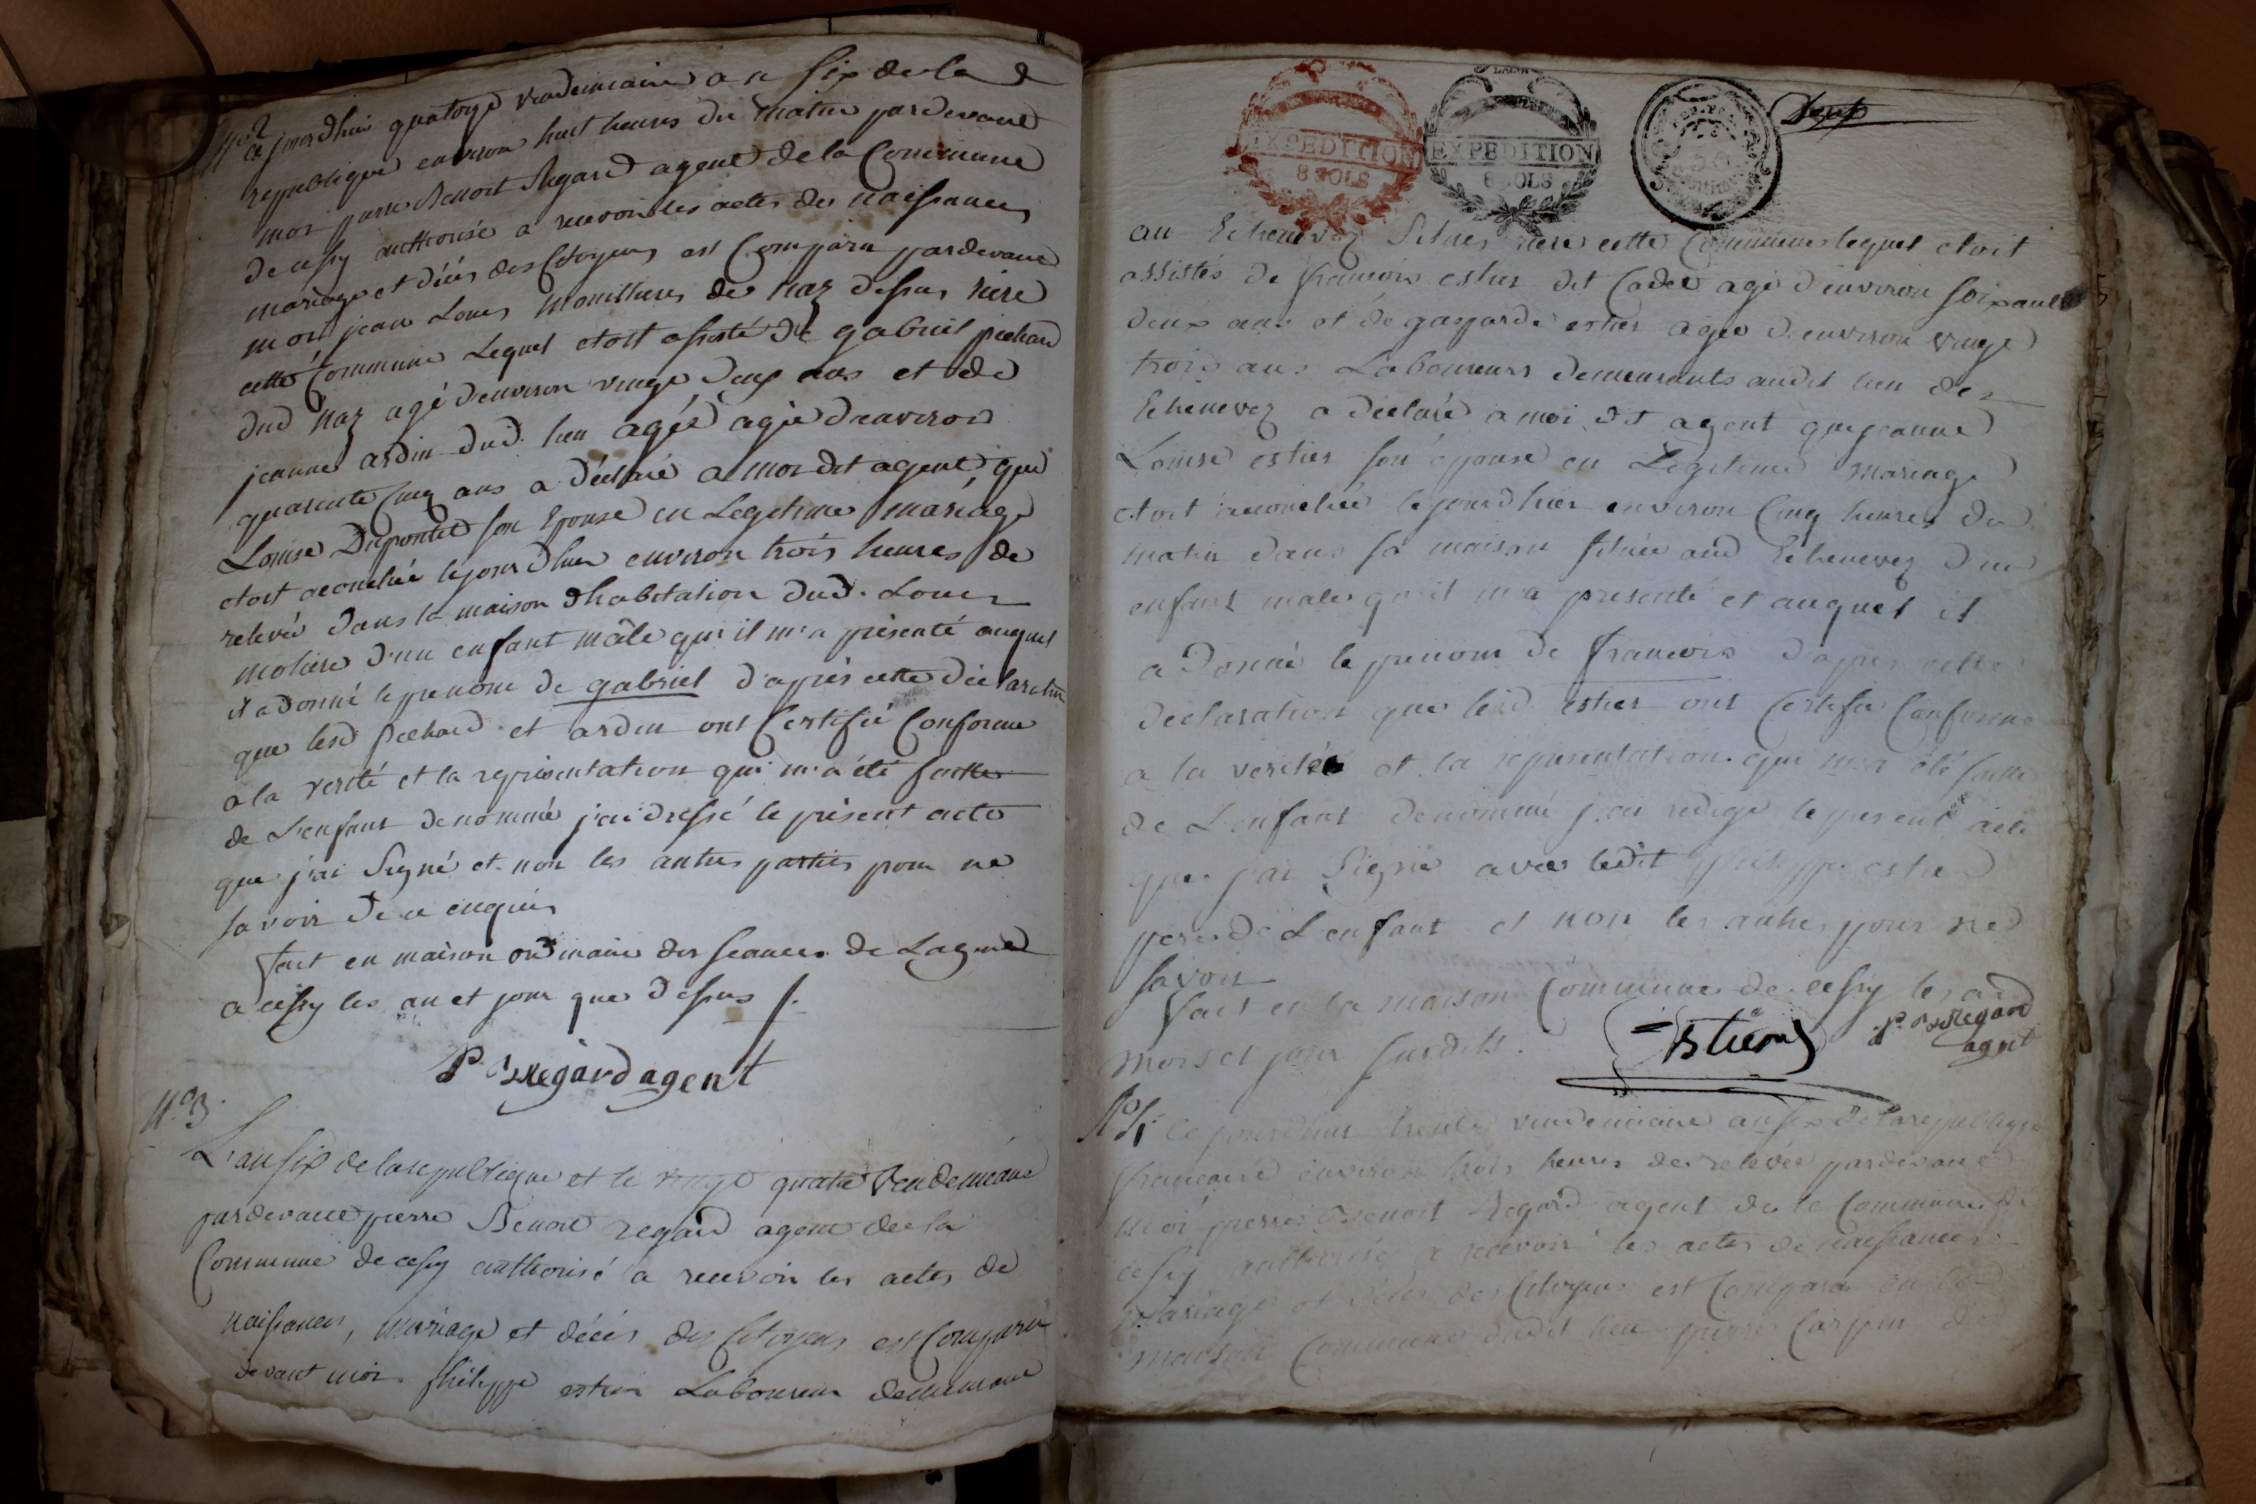 N.º 2
ce jourdhui quatorze vendemiaire an six de la
republique environ huit heures du matin pardevant
moi pierre Benoit Regard agent de la Commune
de cessy authorisé a recevoir les actes des naissances
mariage et décés des Citoyens est Comparu pardevant
moi jean Louis de naz dessus riere
cette Commune Lequel etoit assisté de gabriel pichard
dud naz agé denviron vingt deux ans et de
jeanne ardin dud. lieu agés agée denviron
quarente Cinq ans a déclaré a moi dit agent que
Louise Dupontet son Epouse en Legitime mariage
etoit acouchée le jour dhier environ trois heures de
relevée dans la maison dhabitation dud. Louis
d'un enfant mâle qui il m'a présenté auquel
il a donné le prenom de gabriel d'après cette déclaration
que lesd pichard et ardin ont Certifié Conforme
a la verité et la représentation qui m'a été faitte
de L'enfant denommé j'ai dressé le présent acte
que j'ai Signé et non les autres parties pour ne
savoir de ce enquis
fait en maison ordinaire des seances de Lagent
a cessy les an et jour que dessus
P. B Regard agent
N.º 3.
L'an six de la republique et le vingt quatre Vendemiaire
pardevant pierre Benoit regard agent de la
Commune de cessy authorisé a recevoir les actes de
naissances, mariage et décés des Citoyens est Comparu
devant moi philippe estier Laboureur demeurant
EXPEDITION
8 SOLS
EXPEDITION
8 SOLS
au Echenevez Situés riere cette Commune lequel etoit
assistés de francois estier dit Cadet agé d'environ soixante
deux ans et de gasparde estier agée d'environ vingt
trois ans Laboureurs demeurants audit lieu de
Echenevez a déclaré a moi dt agent que jeanne
Louise estier son épouse en Legitime mariage
etoit acouchée le jourdhier environ Cinq heures du
matin dans sa maison située aud Echenevez d'un
enfant male quil m'a presenté et auquel il
a donné le prenom de francois d'apres cette
declaration que lesd estier ont Certifié Conforme
a la verité et la representation qui m'a été faitte
de L'enfant denommé j'ai redigé le present acte
que j'ai Signé avec ledit philippe estier
pere de L'enfant et non les autres pour ne
savoir
fait en la maison Commune de cessy les an
mois et jour susdits.
Estier
P. B Regard
agent
N.º 4 Ce jourdhui trente vendemiaire an six de la republique
francaise environ trois heures de relevée pardevant
moi pierre Benoit Regard agent de la Commune de
cessy authorisé a recevoir les actes de naissances
mariage et décés des Citoyens est Comparu en la
maison Commune dudit lieu pierre Carpin de